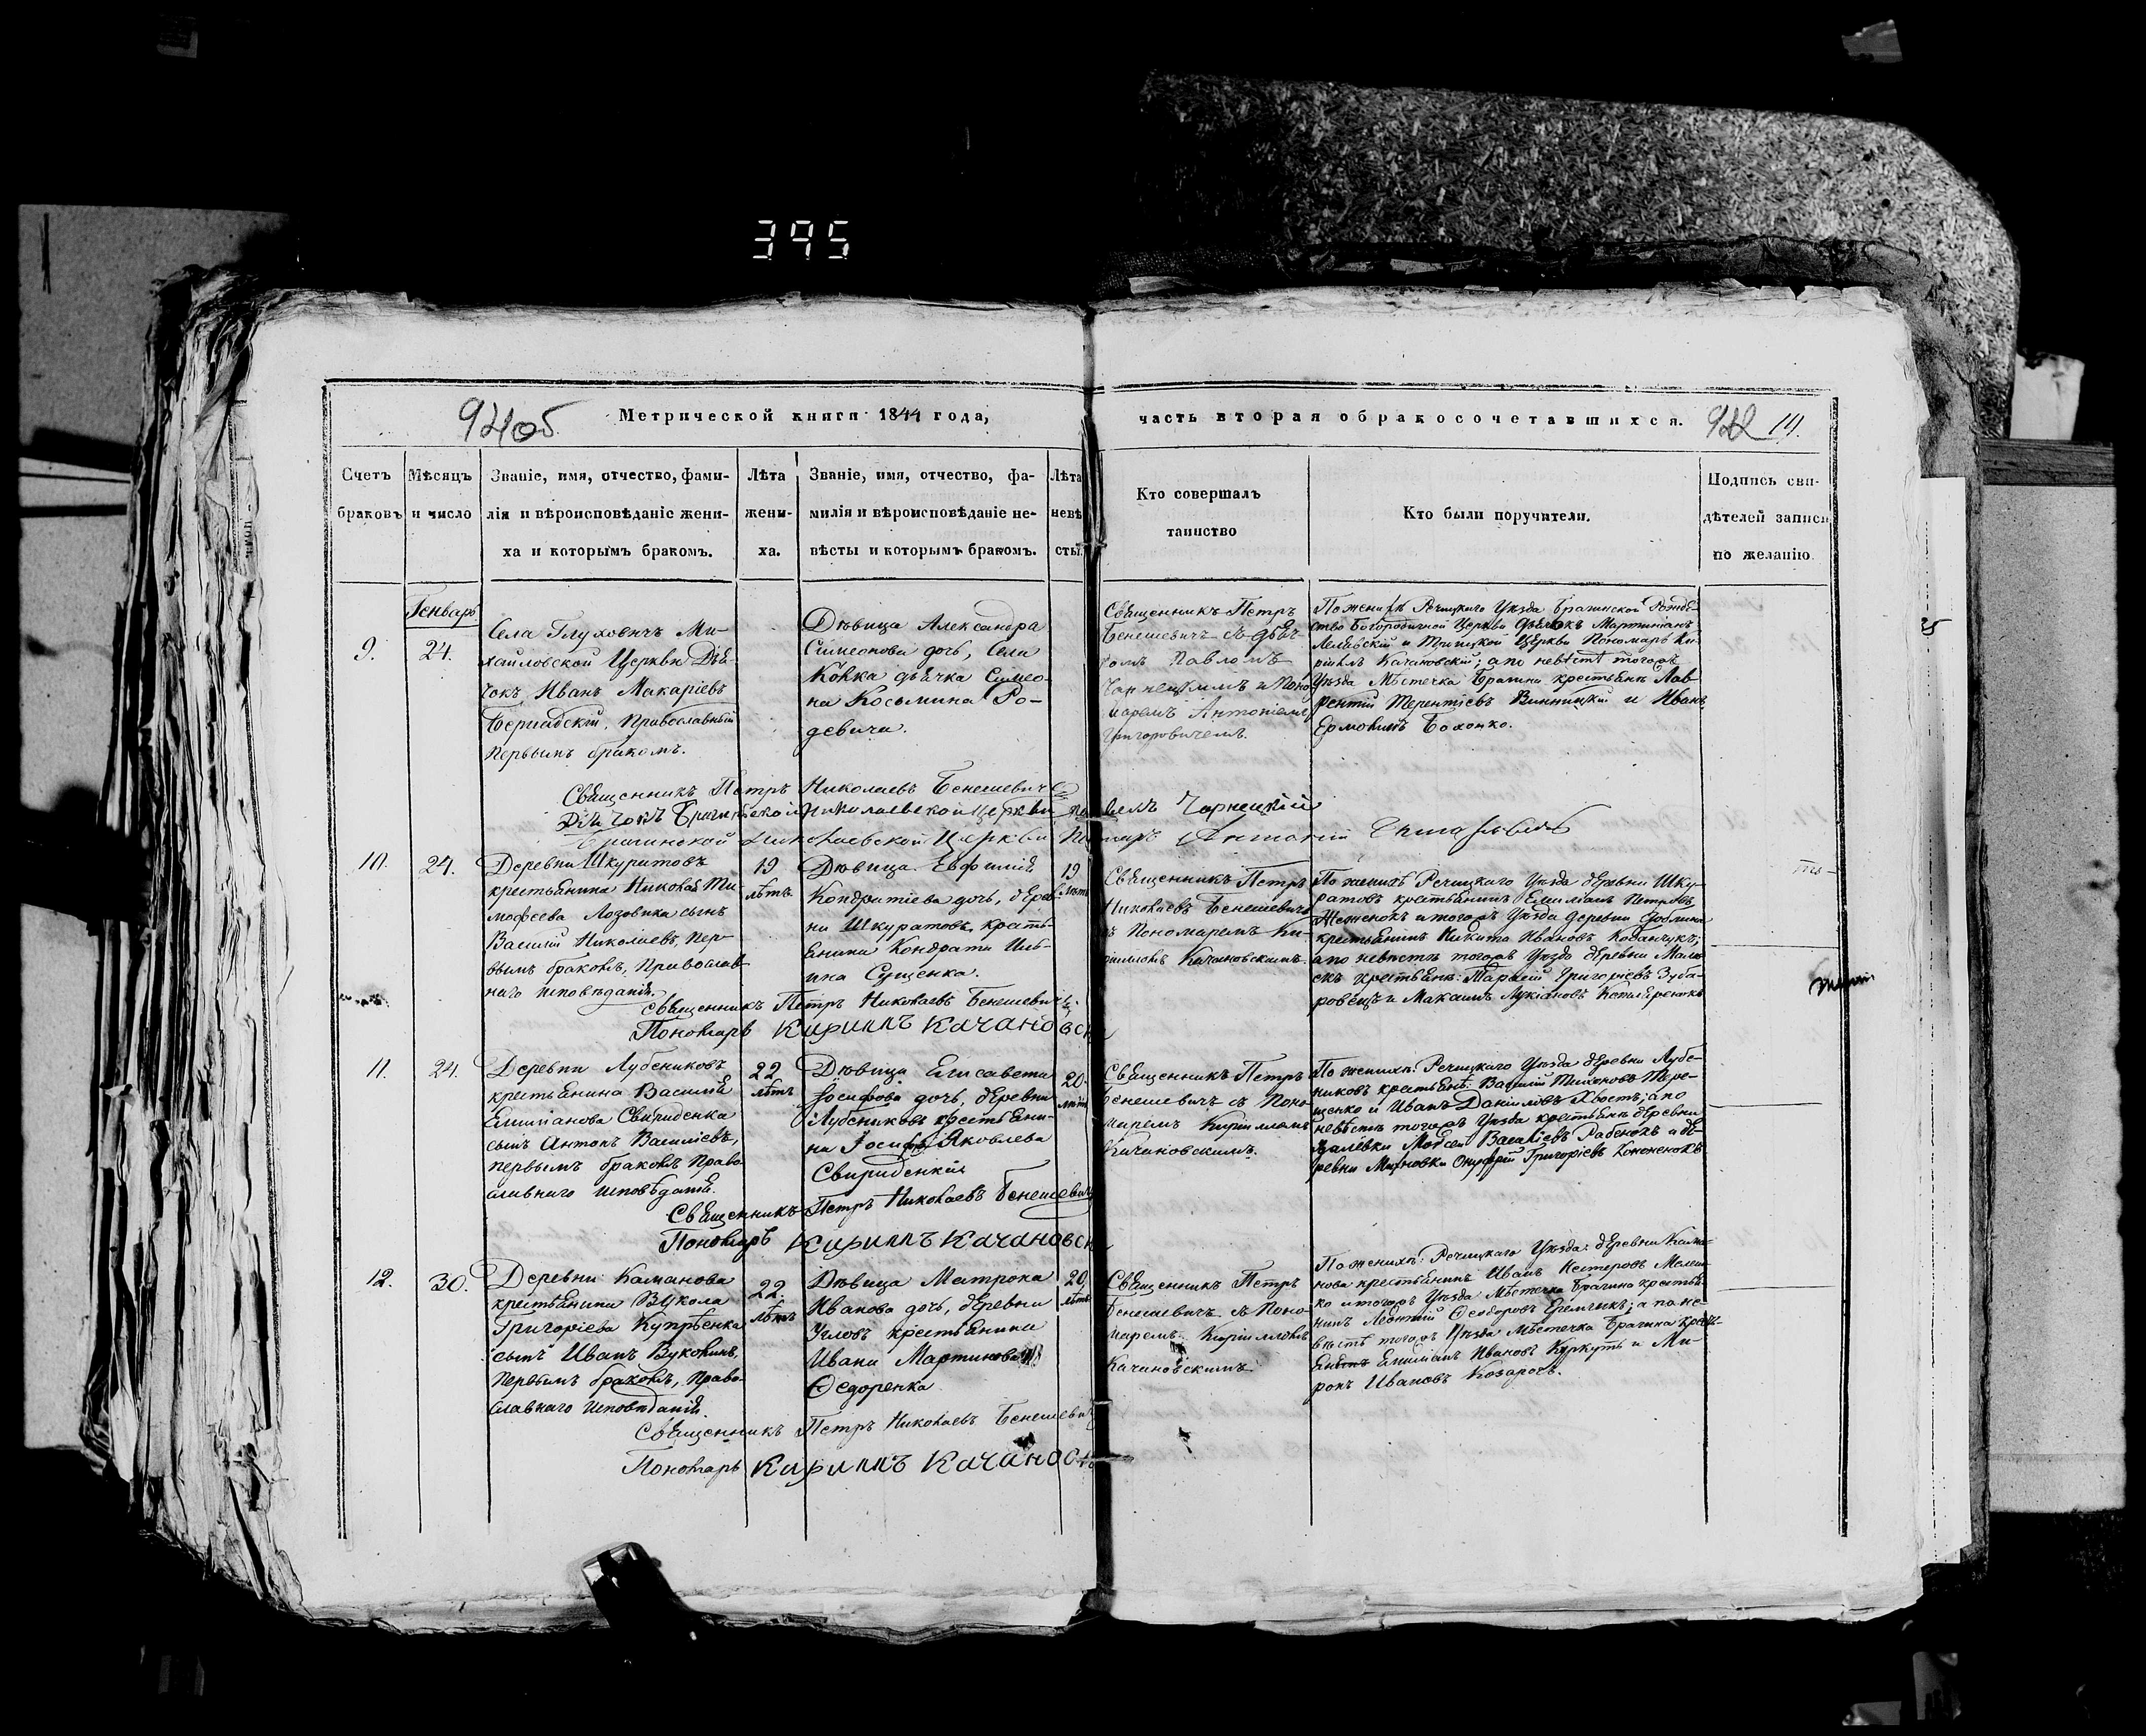 395
Метрической книги 1844 года,
часть вторая о бракосочетавшихся.
19.
Счетъ браковъ
Мѣсяцъ и число
Званіе, имя, отчество, фами-
лія и вѣроисповѣданіе жени-
ха и которымъ бракомъ.
Лѣта
жени-
ха.
Званіе, имя, отчество, фа-
милія и вѣроисповѣданіе не-
вѣсты и которымъ бракомъ.
Лѣта
невѣ
сты.
Кто совершалъ
таинство
Кто были поручители.
Подпись сви-
дѣтелей записи
по желанію.
Генварь
9.
24.
Села Глуховичъ Ми-
хайловской Церкви Дья-
чокъ Иванъ Макаріевъ
Бернадскій, Православный
первымъ бракомъ.
Дѣвица Александра
Симеонова дочь, Села
дьячка Симео-
на Косьмина Ро-
девича.
Священникъ Петръ
Бенешевичъ съ Дьяч-
комъ Павломъ
Чарнецкимъ и Поно-
маремъ Антоніемъ
Григоровичемъ.
По женихѣ Речицкаго Уѣзда Брагинской Рожде-
ство Богородичной Церкви дьячокъ Мартиніанъ
и Троицкой Церкви Пономарь Ки-
риллъ Качановскій; а по невѣстѣ тогожъ
Уѣзда Мѣстечка Брагина крестьяне Лав-
рентій Терентіевъ Винницкій и Иванъ
Священникъ Петръ Николаевъ Бенешевичъ
Дьячокъ Брагинской Николаевской Церкви Павелъ Чарнецкій
Брагинской Николаевской Церкви Пономарь Антоній
10.
24.
Деревни Шкуратовъ
крестьянина Николая Ти-
мофеева Лозовика сынъ
Василій Николаевъ, пер-
вымъ бракомъ, Православ-
наго исповѣданія.
19
лѣтъ
Дѣвица Евфимія
Кондратіева дочь, дерев-
ни Шкуратовъ, кресть-
янина Кондрата Иль-
ина Сущенка.
19
лѣтъ
Священникъ Петръ
Николаевъ Бенешевичъ
съ Пономаремъ Ки-
рилломъ Качановскимъ.
По женихѣ Речицкаго Уѣзда деревни Шку-
ратовъ крестьянинъ Емиліанъ Петровъ
и тогожъ Уѣзда деревни
крестьянинъ Никита Ивановъ
а по невѣстѣ тогожъ Уѣзда деревни
крестьяне: Тарасій Григоріевъ Зуба-
ровецъ и Максимъ Лукіановъ
Священникъ Петръ Николаевъ Бенешевичъ
Пономарь Кириллъ Качановск
11.
24.
Деревни Лубениковъ
крестьянина Василія
Емиліанова Свириденка
сынъ Антонъ Василіевъ,
первымъ бракомъ Право-
славнаго исповѣданія.
22
лѣтъ
Дѣвица Елисавета
Іосифова дочь, деревни
Лубениковъ крестьяни-
на Іосифа Яковлева
Свириденка
20.
лѣтъ
Священникъ Петръ
Бенешевичъ съ Поно-
маремъ Кирилломъ
Качановскимъ.
По женихѣ: Речицкаго Уѣзда деревни Лубе-
никовъ крестьяне: Василій Тихоновъ Тере-
щенко и Иванъ Даніиловъ Хвостъ; а по
невѣстѣ тогожъ Уѣзда крестьяне деревни
Моѵсей Василіевъ Рабенокъ и де-
ревни Онуфрій Григоріевъ Кононенокъ
Священникъ Петръ Николаевъ Бенешевичъ
Пономарь Кириллъ Качановск
12.
30.
Деревни Каманова
крестьянина Вукола
Григоріева Купрѣенка
сынъ Иванъ Вуколинъ,
первымъ бракомъ, Право-
славнаго исповѣданія.
22.
лѣтъ
Дѣвица Матрона
Иванова дочь, деревни
Угловъ крестьянина
Ивана Мартинова
Ѳедоренка
20
лѣтъ
Священникъ Петръ
Бенешевичъ съ Поно-
маремъ Кирилломъ
Качановскимъ
По женихѣ: Речицкаго Уѣзда: деревни Кама-
нова крестьянинъ Иванъ Нестеровъ
и тогожъ Уѣзда Мѣстечка Брагина крестья-
нинъ Леонтій Ѳеодоровъ Еремчикъ; а по не-
вѣстѣ тогожъ Уѣзда Мѣстечка Брагина кресть-
Емиліанъ Ивановъ Куркутъ и Ми-
ронъ Ивановъ Козарогъ.
Священникъ Петръ Николаевъ Бенешевичъ
Пономарь Кириллъ Качановск